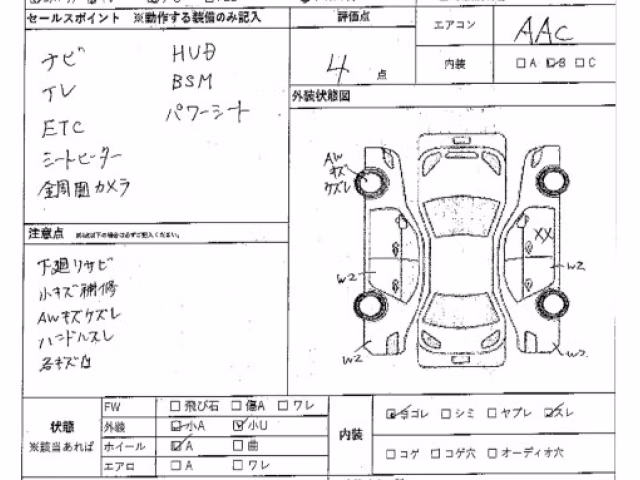 セールスポイント ※動作する装備のみ記入
ナビ HUD
TV BSM
ETC パワーシート
シートヒーター
全周囲カメラ
注意点
下廻りサビ
小キズ補修
AWキズケズレ
ハンドルスレ
名キズ凹
評価点
4 点
エアコン AAC
内装 □A ☑B □C
外装状態図
AW
キズ
ケズレ
XX
W2 W2
W2 W2
状態
※該当あれば
FW □飛び石 □傷A □ワレ
外装 ☑小A ☑小U
ホイール ☑A □曲
エアロ □A □ワレ
内装
☑ヨゴレ □シミ □ヤブレ ☑スレ
□コゲ □コゲ穴 □オーディオ穴